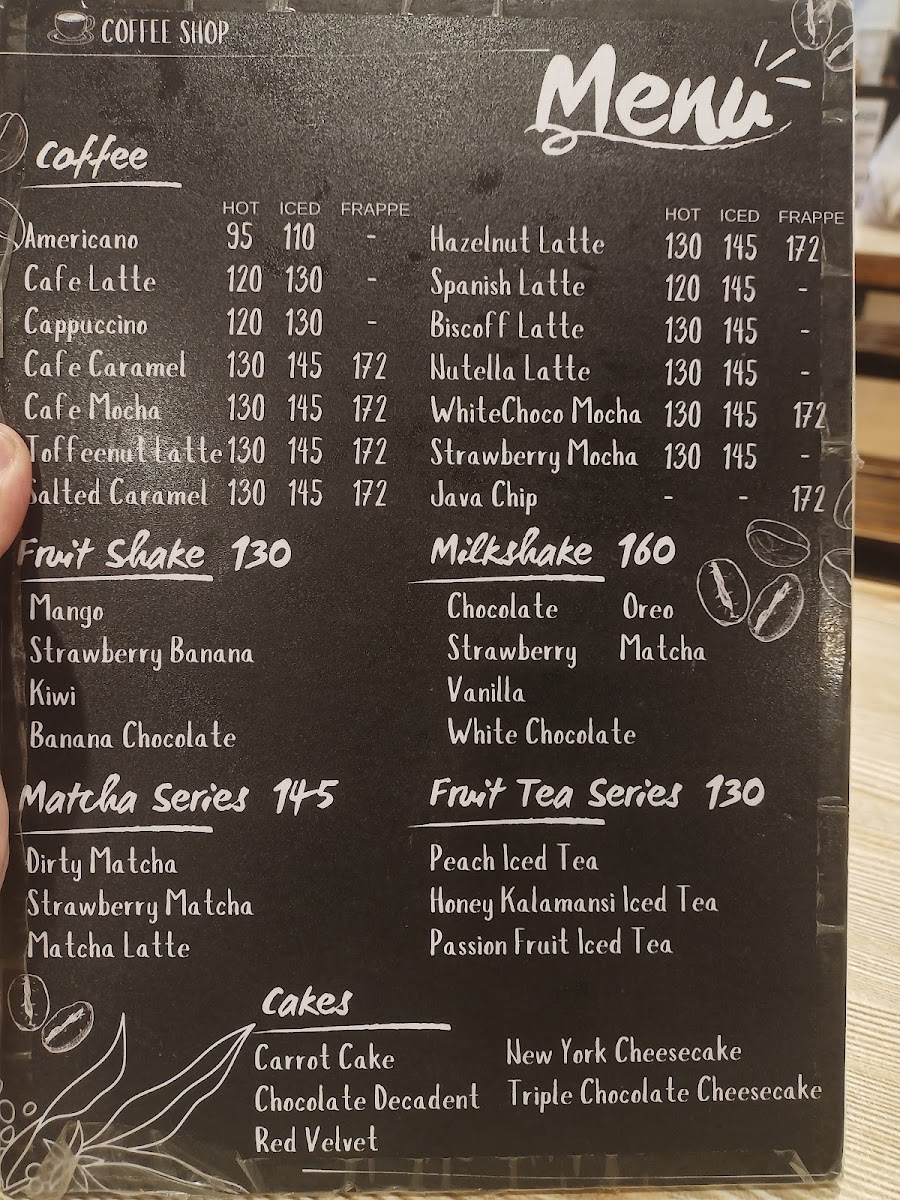 COFFEE SHOP
Menu
Coffee
HOT ICED FRAPPE
Americano 95 110 -
Cafe Latte 120 130 -
Cappuccino 120 130 -
Cafe Caramel 130 145 172
Cafe Mocha 130 145 172
Toffeenut Latte 130 145 172
Salted Caramel 130 145 172
HOT ICED FRAPPE
Hazelnut Latte 130 145 172
Spanish Latte 120 145 -
Biscoff Latte 130 145 -
Nutella Latte 130 145 -
WhiteChoco Mocha 130 145 172
Strawberry Mocha 130 145 -
Java Chip - - 172
Fruit Shake 130
Mango
Strawberry Banana
Kiwi
Banana Chocolate
Milkshake 160
Chocolate Oreo
Strawberry Matcha
Vanilla
White Chocolate
Matcha Series 145
Dirty Matcha
Strawberry Matcha
Matcha Latte
Fruit Tea Series 130
Peach Iced Tea
Honey Kalamansi Iced Tea
Passion Fruit Iced Tea
Cakes
Carrot Cake
Chocolate Decadent
Red Velvet
New York Cheesecake
Triple Chocolate Cheesecake